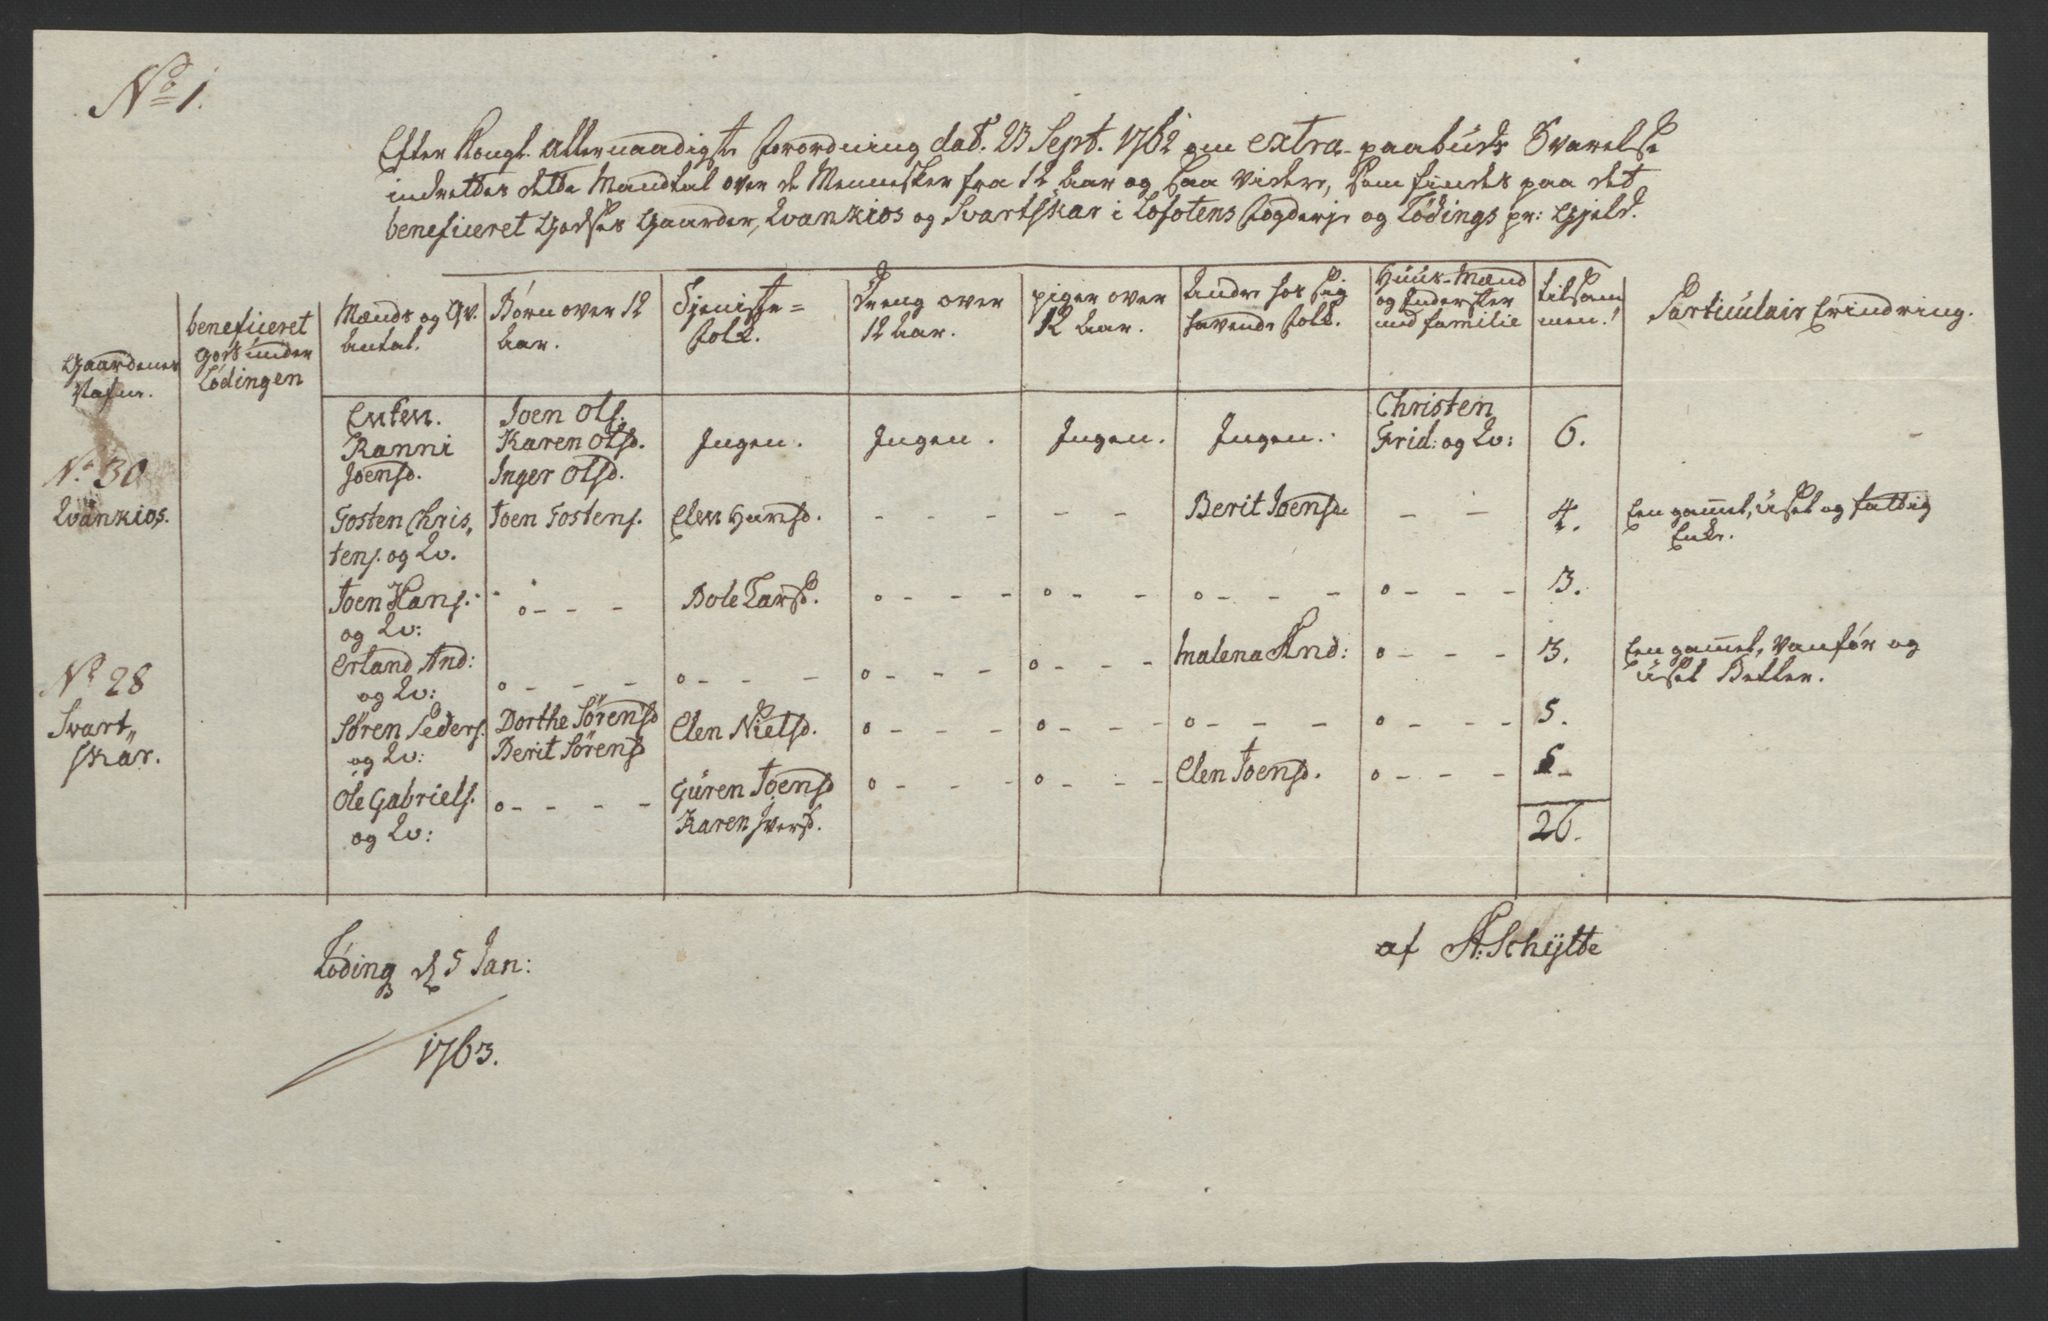 No 1.
Efter Kongl. Allernaadigste forordning dat. 23 Sept. 1762 om extra-paabuds Svarelse
indrettes dette Mandtal over de Mennesker fra 12 Aar og saa videre, som findes paa det
beneficeret Godses Gaarder, Qvankios og Svartskar i Lofotens fogderje og Lødings pr: Gjeld.
Gaardenes Nafne.
beneficeret gods under Lødingen
Mænds og Qv. Antal.
Børn over 12 Aar.
Tjeniste= folk.
Dreng over 12 Aar.
piger over 12 Aar.
Andre hos sig havende folk.
Huus-Mænd og Inderster med familie
tilsam men.
Particulair Erindring.
No 30 Qvankios.
Enken. Ranni Joensd. Joen Ols. Karen Olsd. Inger Olsd. Ingen. Ingen. Ingen. Ingen. Christen Frid: og Qv: 6.
Tosten Chris,, tens. og Qv. Joen Tostens. Elen Hansd. - - - - - - Berit Joensd. - - 4. En gammel, usel og fattig Enke.
Joen Hans. og Qv: o - - - Dole Larsd. o - - - o - - o - - - o - - - 3.
No 28 Svart,, skar.
Erland And: og Qv: o - - - o - - - o - - - o - - - Malena And: o - - - 3. En gammel, vanfør og usel Betler.
Søren Peders. og Qv: Dorthe Sørensd Berit Sørensd Elen Nielsd. o - - - o - - - o - - - o - - - 5.
Ole Gabriels. og Qv: o - - - Guren Joensd Karen Iversd. o - - - o - - - Elen Joensd. o - - - 5 -
26.
Løding d. 5 Jan:
1763.
af A: Schytte